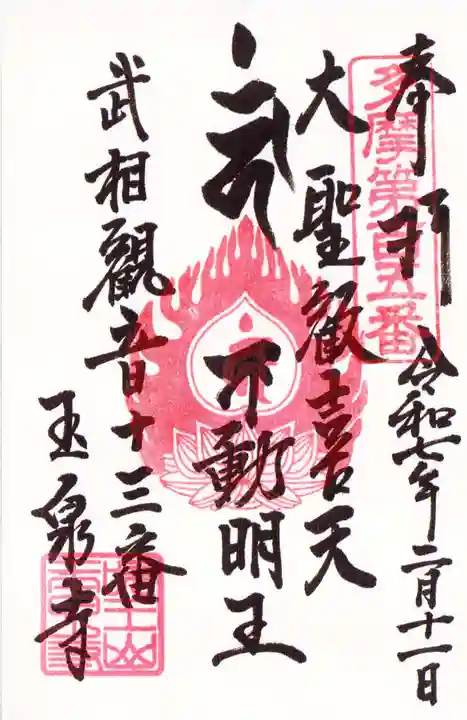 奉拝
令和七年二月十一日
多摩第百五番
大聖歓喜天
不動明王
武相観音十三番
玉泉寺